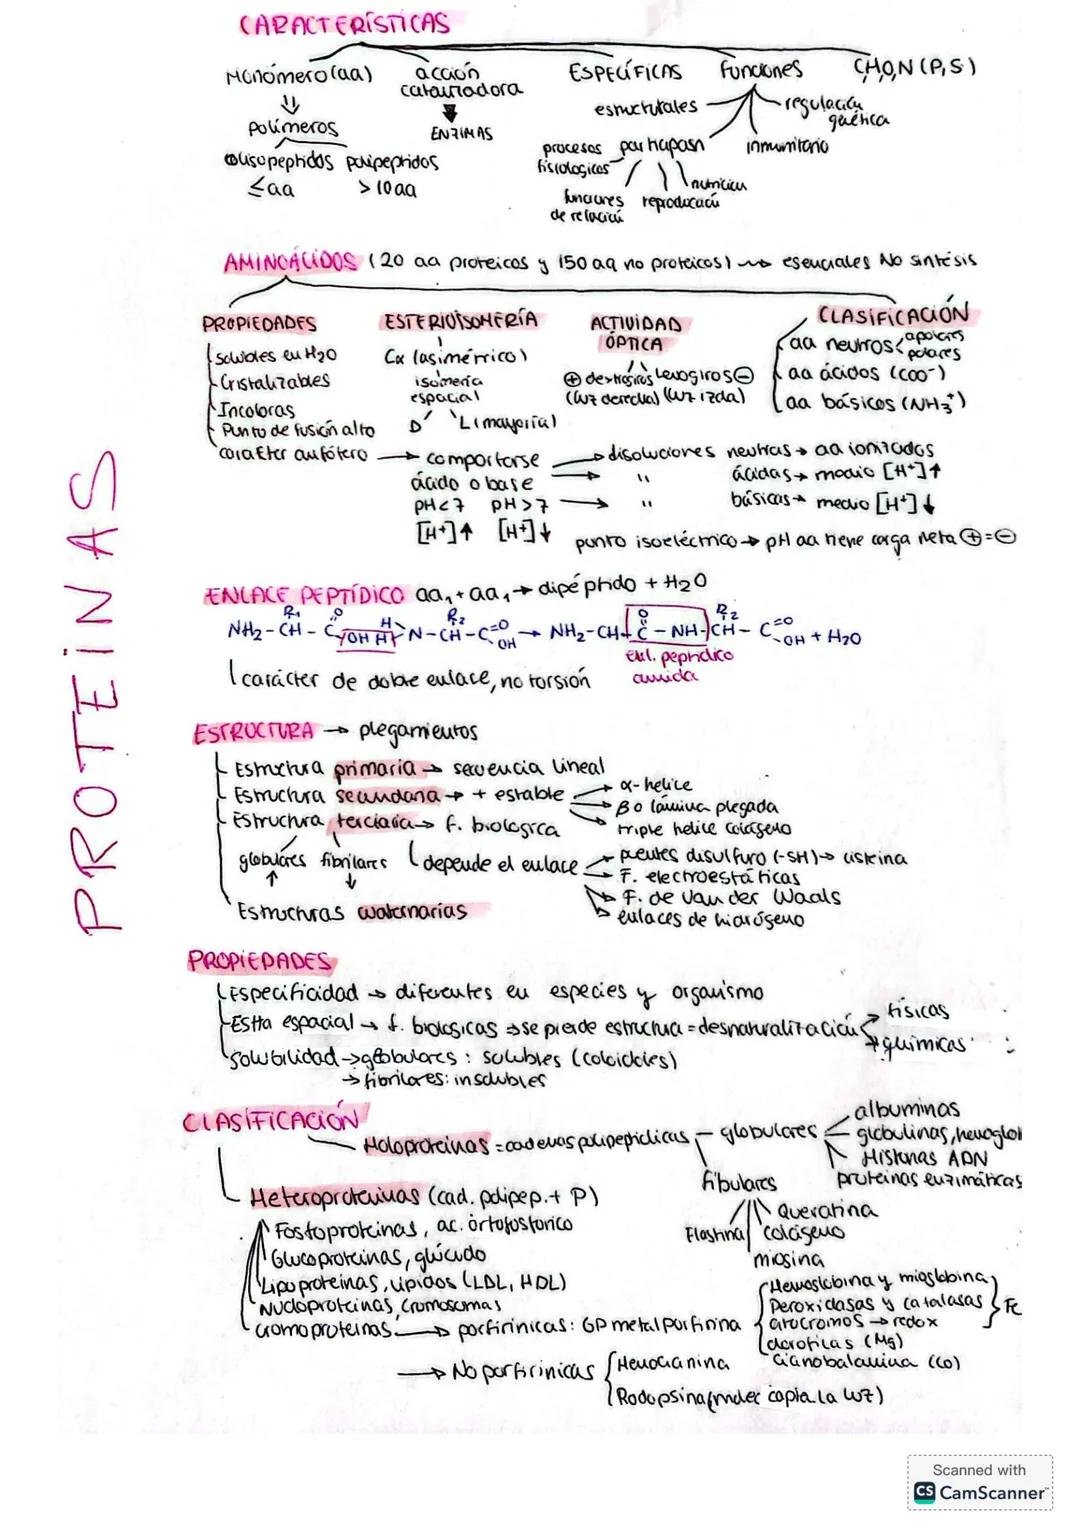 PROTEÍNAS
CARACTERÍSTICAS
Monómero (aa) acción catalizadora ESPECÍFICAS funciones CHO,N (P,S)
Polímeros ENZIMAS estructurales regulación genética
oligopeptidos polipeptidos procesos fisiologicos participan inmunitario
≤aa >10 aa funciones de relación reproducción nutrición
AMINOÁCIDOS (20 aa proteicos y 150 aa no proteicos) → esenciales No sintesis
PROPIEDADES ESTERIOISOMERÍA ACTIVIDAD ÓPTICA CLASIFICACIÓN
Solubles en H2O Cα (asimétrico) aa neutros < apolares polares
Cristalizables isomeria espacial ⊕ dextrogiros Levogiros ⊖ aa ácidos (COO-)
Incoloras D L (mayoría) (luz derecha) (luz izda) aa básicos (NH3+)
Punto de fusión alto
carácter anfótero → comportarse → disoluciones neutras → aa ionizados
ácido o base → " ácidas → medio [H+]↑
pH<7 pH>7 → " básicas → medio [H+]↓
[H+]↑ [H+]↓ punto isoeléctrico → pH aa tiene carga neta ⊕=⊖
ENLACE PEPTÍDICO aa1 + aa1 → dipéptido + H2O
NH2 - CH - C OH H N - CH - C =O OH → NH2 - CH - C - NH - CH - C =O -OH + H2O
R1 O H R2 O R2
enl. peptidico
amida
carácter de doble enlace, no torsión
ESTRUCTURA → plegamientos
Estructura primaria → secuencia lineal
Estructura secundaria → + estable → α-helice
→ β o lámina plegada
→ triple helice colágeno
Estructura terciaria → f. biologica
globulares fibrilares depende el enlace → puentes disulfuro (-SH) → cisteina
→ F. electroestáticas
→ F. de Van der Waals
→ enlaces de hidrógeno
Estructuras cuaternarias
PROPIEDADES
Especificidad → diferentes en especies y organismo
Estra espacial → f. biologicas ⇒ se pierde estructura = desnaturalización → físicas
→ químicas
Solubilidad → globulares: solubles (coloidales)
→ fibrilares: insolubles
CLASIFICACIÓN
Holoproteinas = cadenas polipeptidicas - globulares albuminas
globulinas, hemoglo
Histonas ADN
proteinas enzimáticas
fibulares
Queratina
Elastina colágeno
miosina
Heteroproteinas (cad. polipep. + P)
Fosfoproteinas, ac. ortofosforico
Glucoproteinas, glúcido
Lipoproteínas, lipidos (LDL, HDL)
Nucloproteinas, cromosomas
Cromoproteinas → porfirinicas: GP metal Porfirina
Hemoglobina y mioglobina
Peroxidasas y catalasas } Fe
citocromos → redox
clorofilas (Mg)
Cianobalamina (Co)
→ No porfirinicas Hemocianina
Rodopsina (molec capta la luz)
Scanned with
CS CamScanner